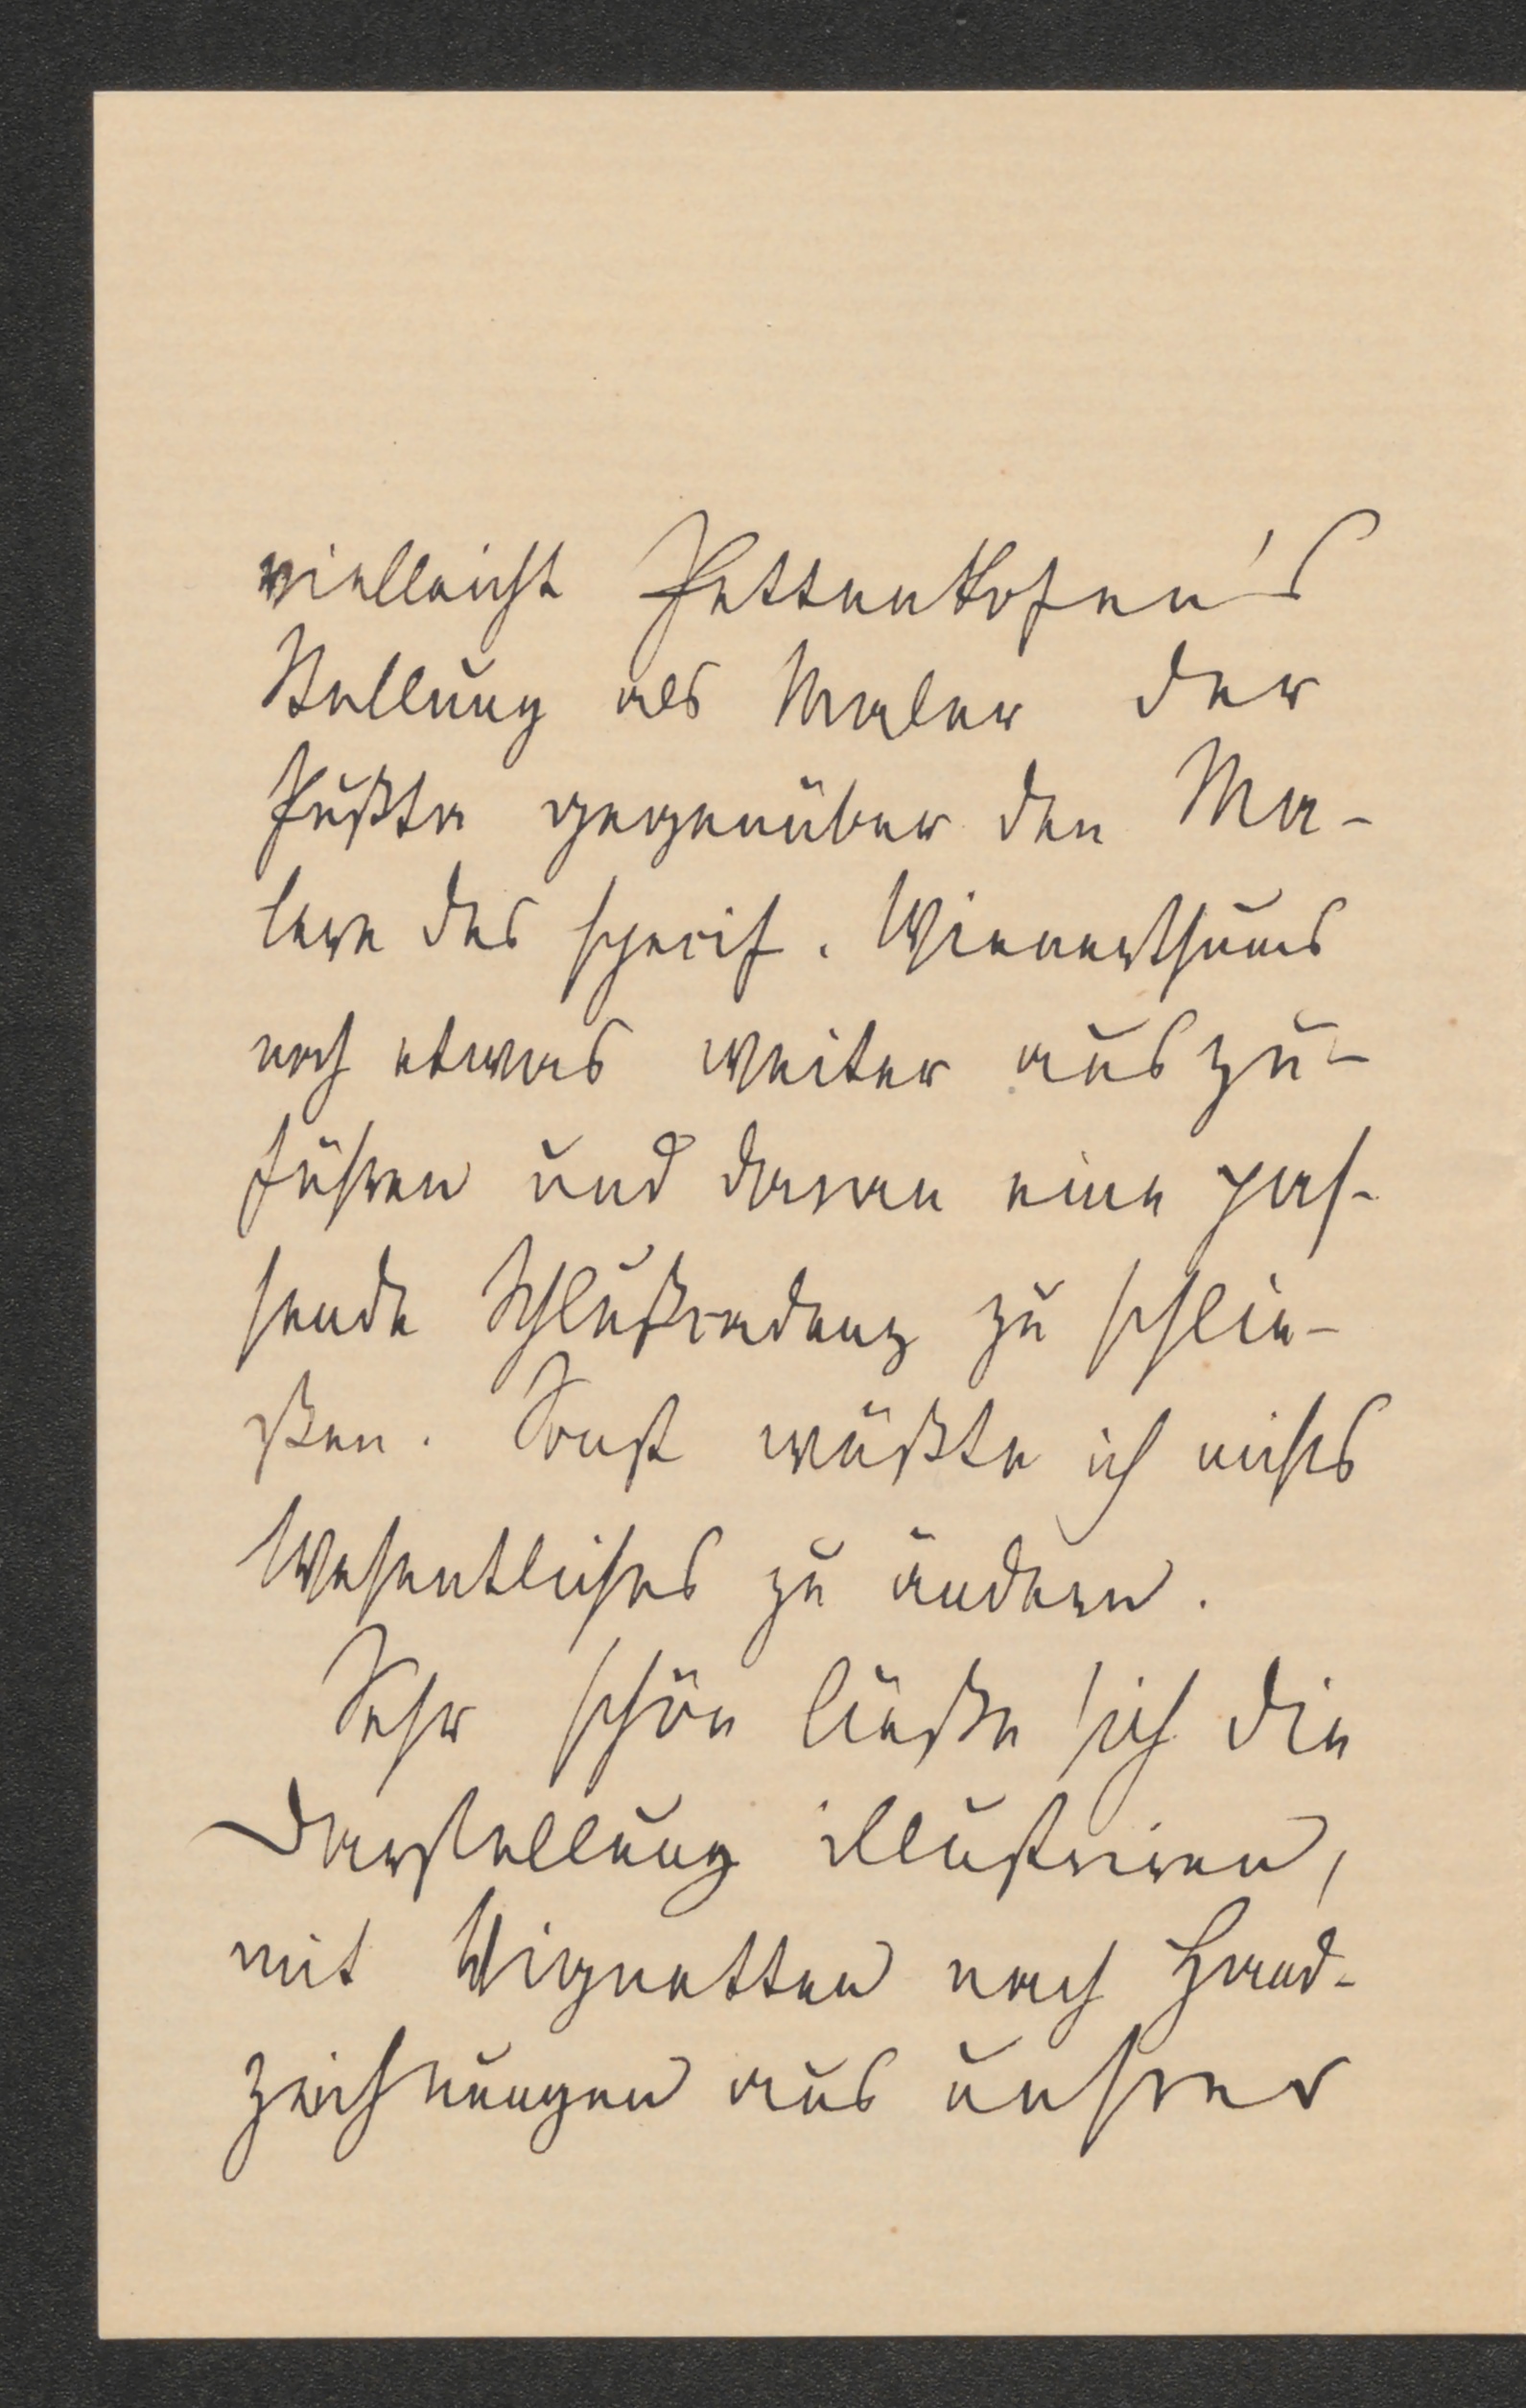 vielleicht Pettenkofen's
Stellung als Maler der
Pußta gegenüber den Ma-
lern des specif. Wienerthums
noch etwas weiter auszu-
führen und daran eine pas-
sende Schlußcadenz zu schlie-
ßen. Sonst wüßte ich nichts
Wesentliches zu ändern.
Sehr schön ließe sich die
Darstellung illustriren,
mit Vignetten nach Hand-
zeichnungen aus unsrer